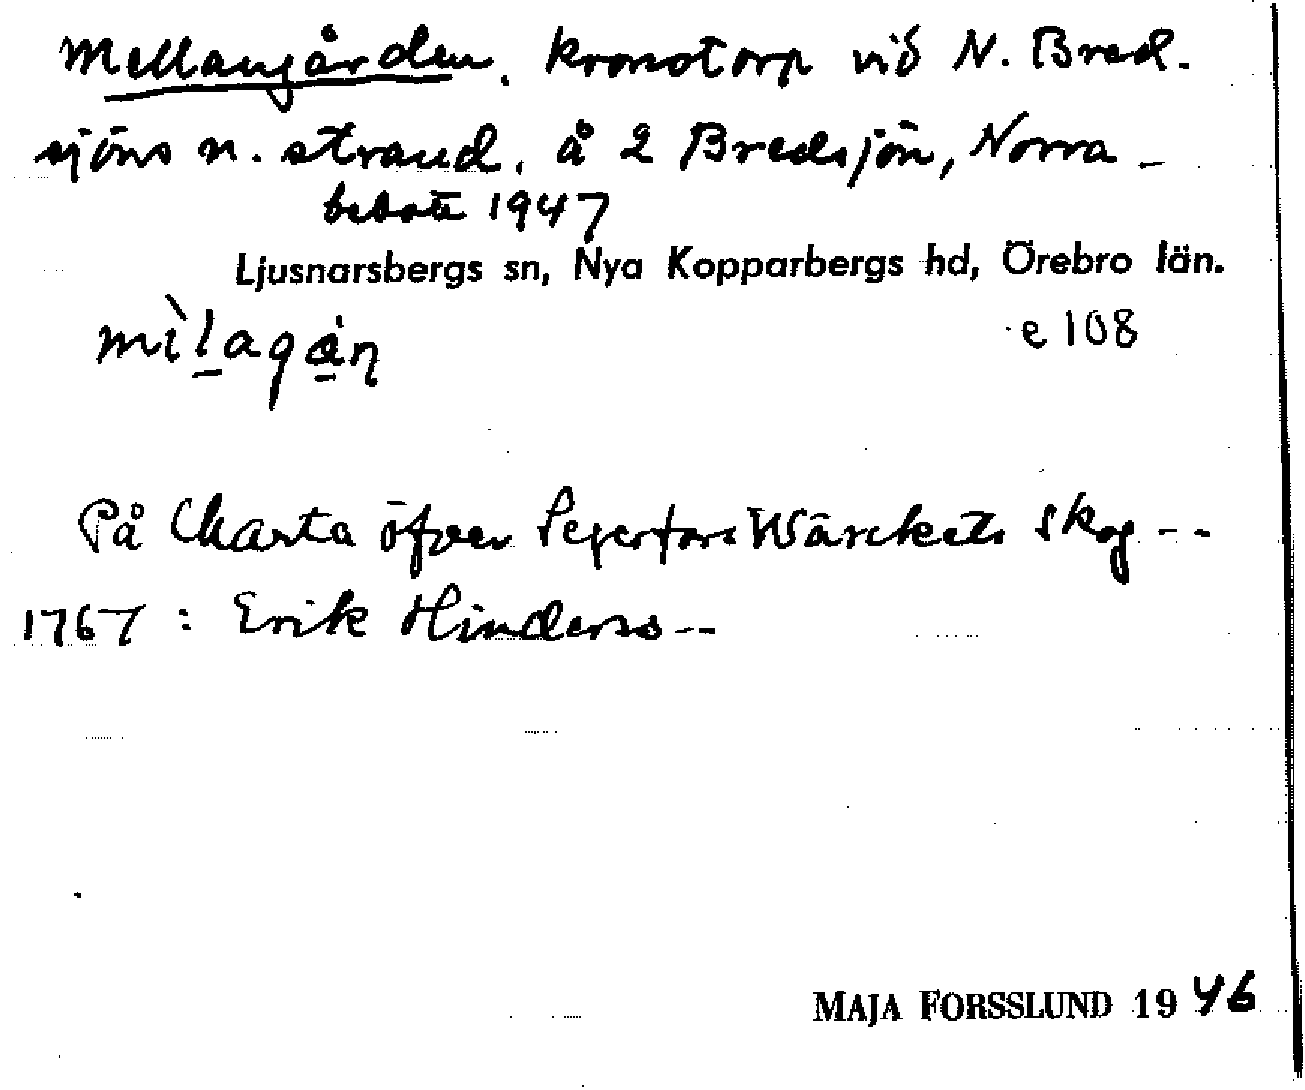 Mellangården. kronotorp vid N. Bred-
sjöns n. strand. å 2 Bredsjön, Norra –
bebott 1947
Ljusnarsbergs sn, Nya Kopparbergs hd, Örebro län.
mìlagån̩ e 108
På Charta öfver Segerfors Wärckets skog --
1767 : Erik Hinderss--
MAJA FORSSLUND 1946